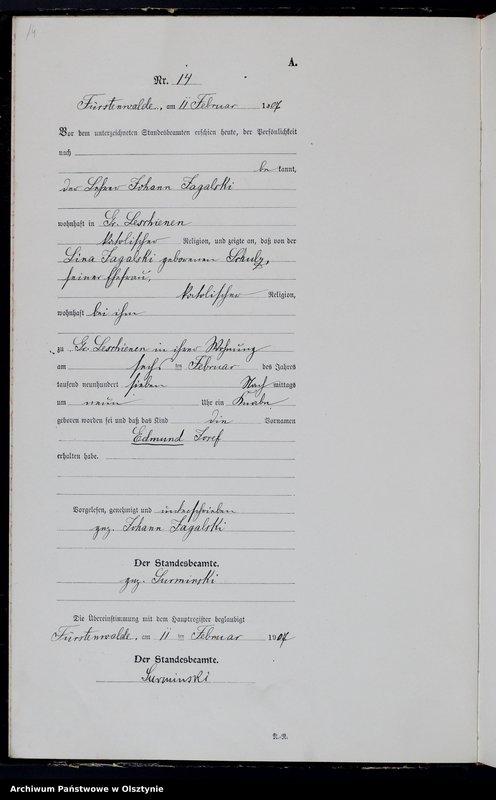 14
A.
Nr. 14
Fürstenwalde, am 11 Februar 1907
Vor dem unterzeichneten Standesbeamten erschien heute, der Persönlichkeit
nach
be kannt,
der Lehrer Johann Jagalski
wohnhaft in Gr. Leschienen
katolischer Religion, und zeigte an, daß von der
Lina Jagalski geborenen Schulz,
seiner Ehefrau,
katolischer Religion,
wohnhaft bei ihm
zu Gr. Leschienen in ihrer Wohnung
am sechs ten Februar des Jahres
tausend neunhundert sieben Nach mittags
um neun Uhr ein Knabe
geboren worden sei und daß das Kind die Vornamen
Edmund Josef
erhalten habe.
Vorgelesen, genehmigt und unterschrieben
gez. Johann Jagalski
Der Standesbeamte.
gez. Surminski
Die Übereinstimmung mit dem Hauptregister beglaubigt
Fürstenwalde, am 11 ten Februar 1907
Der Standesbeamte.
Surminski
N.-R.
Archiwum Państwowe w Olsztynie